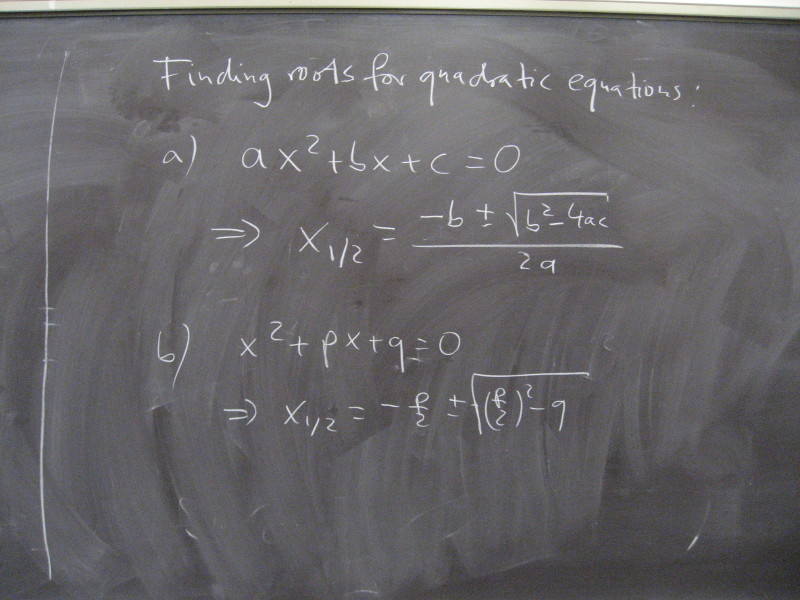 Finding roots for quadratic equations:
a) ax²+bx+c=0
⇒ x₁/₂ = (-b ± √(b²-4ac))/(2a)
b) x²+px+q=0
⇒ x₁/₂ = -p/2 ± √((p/2)²-q)